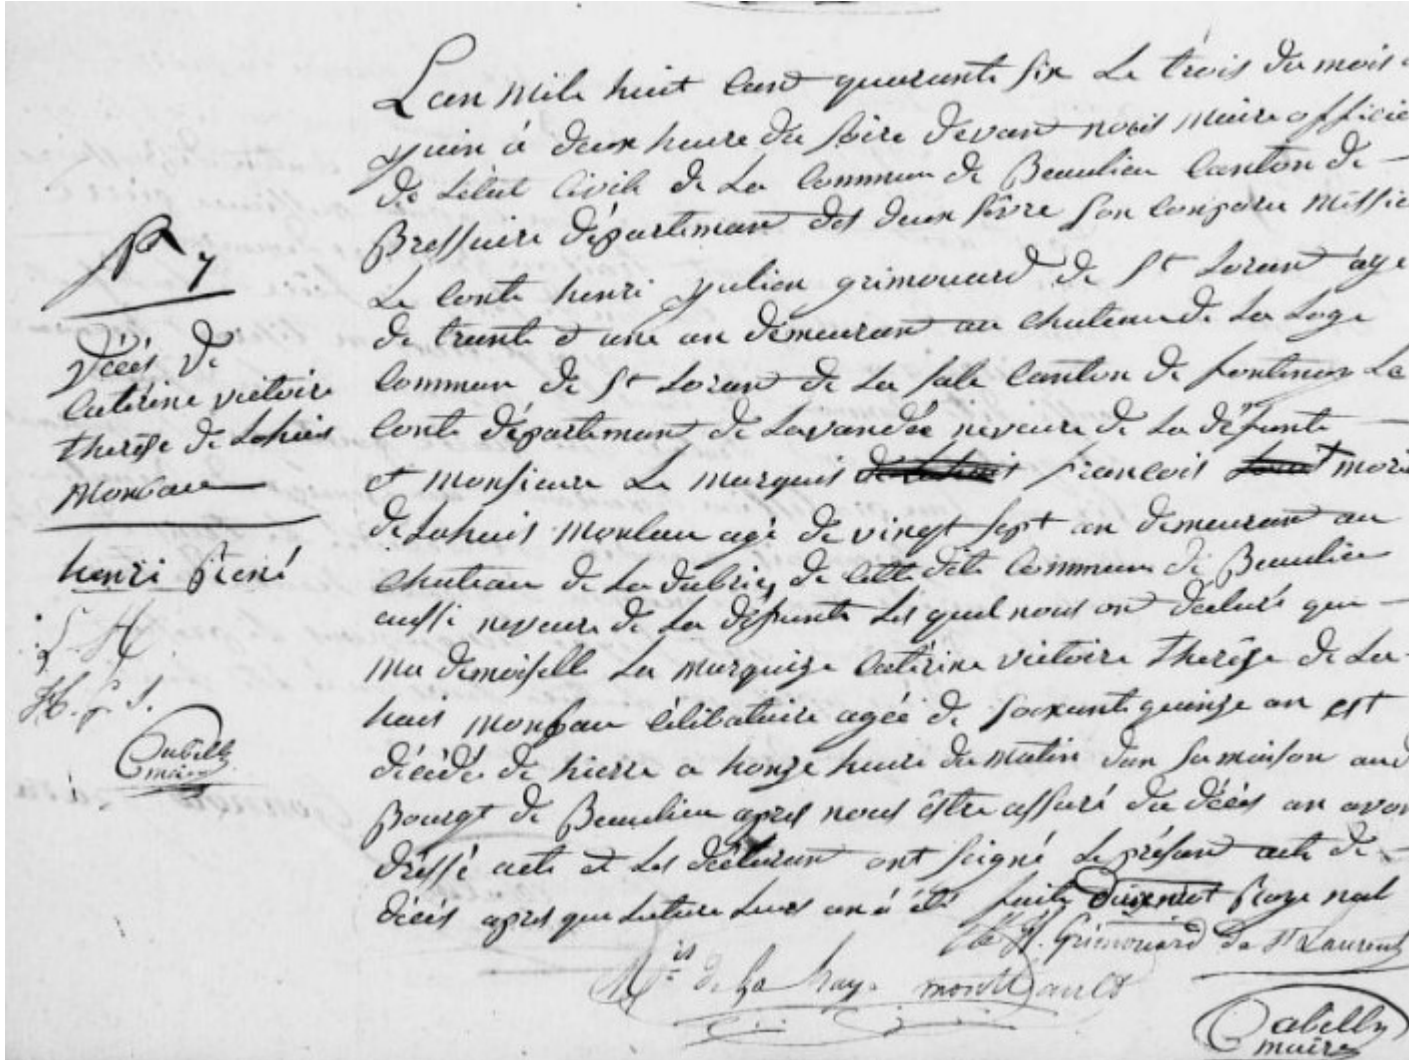 N 7
Décès de
Catérine victoire
thérèse de Lahais
Monbau
henri René
L. H
H. g. S.
Gabelly
maire
Lan Mile huit Cant quarante six Le trois du mois
juin à deux heure du soire devan nous maire officie
de Létat Civile de La Commun de Beaulieu Canton de
Bressuire départeman des deux sèvre son conparu Messie
Le Conte henri julien grimouard de St Loran âge
de trante et une an demeuran au chateau de La Loge
Commun de St Loran de La sale Canton de fontenay Le
Conte départeman de Lavandée neveure de La défunte
et monsieure Le marquis françois mori
de Lahais Monbau agé de vingt sept an demeuran au
Chateau de La dubrie, de cette dite Commun de Beaulieu
aussi neveure de La défunte Les quel nous on déclaré que
ma demoiselle La marquise Catérine victoire Therèse de La
hais monbau Célibataire agée de soixante quinze an est
décédé de hierre a honze heure du matin dan sa maison au
Bourgt de Beaulieu apres nous être assuré du décès an avon
dressé acte et Les déclaran ont seigné Le présan acte de
décès apres que Lecture Leurs an à été faite Raye nul
H. Grimouard de St Laurent
Mis de la haye montbault
Gabelly
maire